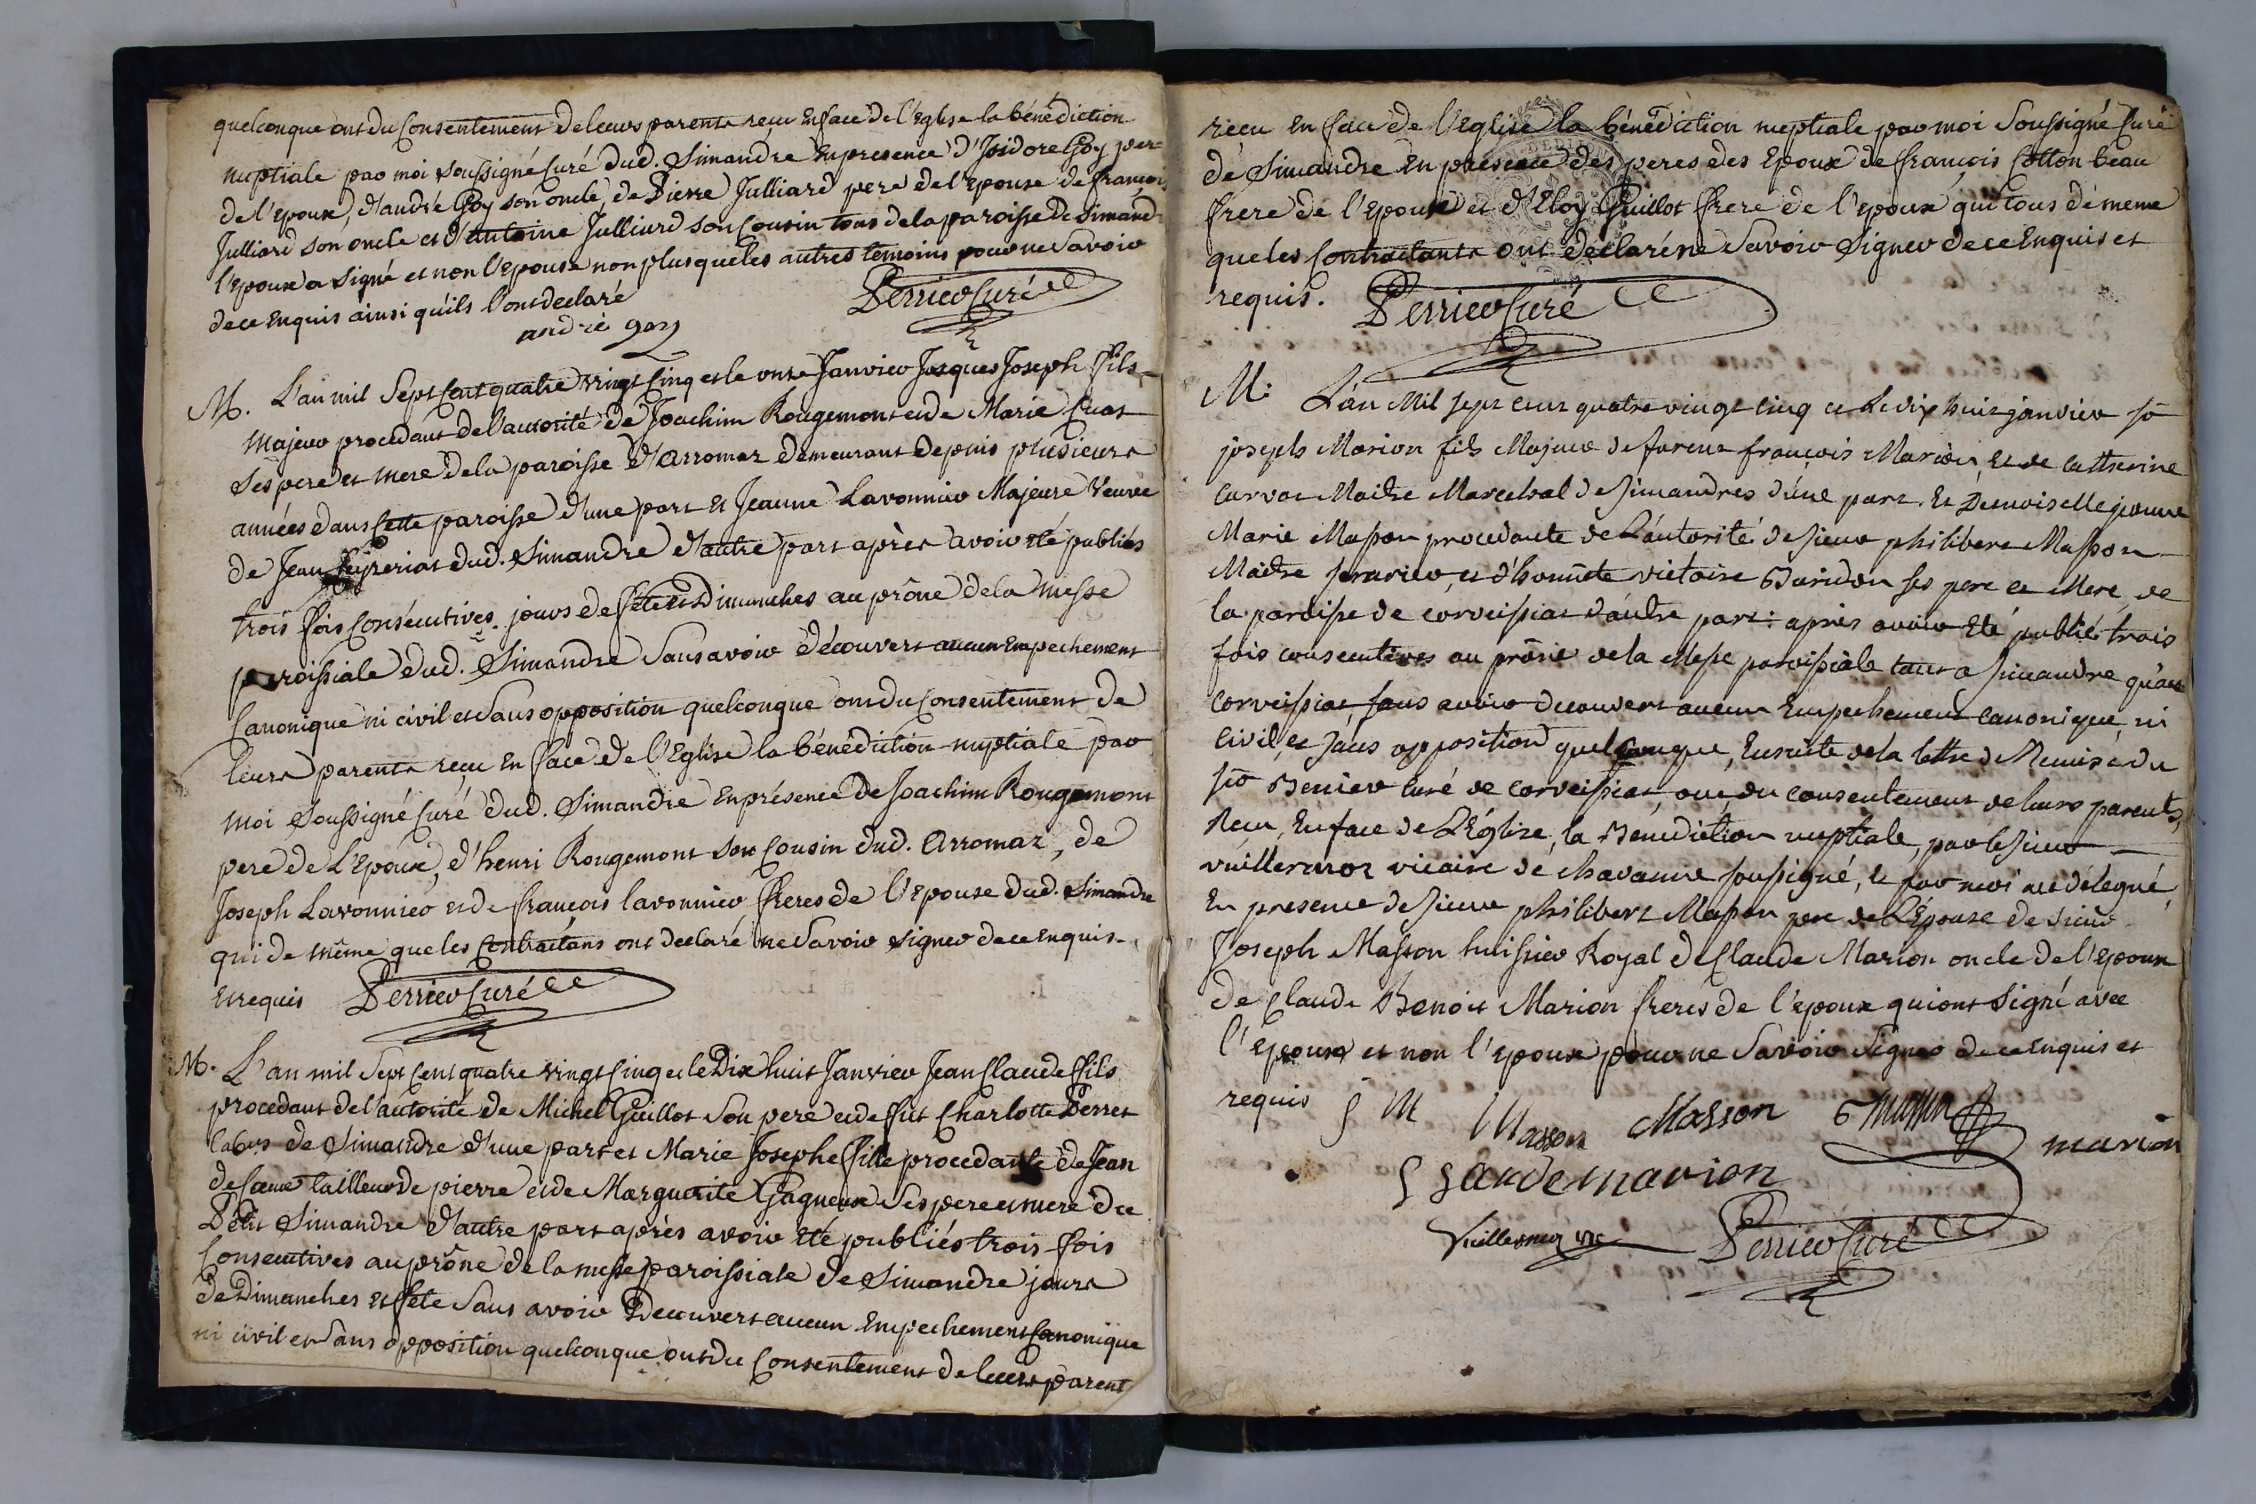 quelconque ont du Consentement de leurs parents reçu En face de l'Eglise la bénédiction
nuptiale par moi soussigné Curé dud. Simandre En presence d'Isidore Goy pere
de l'epoux, d'andré Goy son oncle, de Pierre Julliard pere de l'Epouse de françois
Julliard son oncle et d'antoine Julliard son Cousin tous de la paroisse de Simand
l'epoux a signé et non l'epouse non plus que les autres temoins pour ne Savoir
de ce Enquis ainsi qu'ils l'ont declaré
andré goy
Perrier Curé
M. L'an mil Sept Cent quatre vingt Cinq et le onze Janvier Jacques Joseph fils
Majeur procedant de l'autorité de Joachim Rougemont et de Marie Cuat
Ses pere et mere de la paroisse d'arromaz demeurant depuis plusieurs
années dans Cette paroisse d'une part Et Jeanne Lavonnier Majeure Veuve
de Jean dud. Simandre d'autre part après avoir eté publiés
trois fois Consécutives jours de fête et Dimanches au prône de la Messe
paroissiale dud. Simandre Sans avoir découvert aucun Empechement
Canonique ni civil et Sans opposition quelconque ont du Consentement de
leurs parents reçu En face de l'Eglise la bénédiction nuptiale par
moi Soussigné Curé dud. Simandre En présence de Joachim Rougemont
pere de L'Epoux, d'henri Rougemont son Cousin dud. Arromaz, de
Joseph Lavonnier et de françois lavonnier freres de l'Epouse dud. Simandre
qui de même que les Contractans ont declaré ne Savoir signer de ce Enquis
Et requis Perrier Curé
M. L'an mil Sept Cent quatre vingt Cinq et le Dix huit Janvier Jean Claude fils
procedant de l'autorité de Michel Guillot Son pere et de fut Charlotte Perret
labrs de Simandre d'une part et Marie Josephe fille procedante de Jean
tailleur de pierre et de Marguerite Gagneux Ses pere et mere du
Petit Simandre d'autre part après avoir eté publiés trois fois
Consecutives au prône de la messe paroissiale de Simandre jours
de Dimanches et fête Sans avoir Decouvert aucun Empechement Canonique
ni civil et Sans opposition quelconque ont du Consentement de leurs parent
reçu En face de l'Eglise la bénédiction nuptiale par moi Soussigné Curé
de Simandre En presence des peres des Epoux de françois Cotton beau
frere de l'Epouse et d'Eloy Guillot frere de l'epoux qui tous de même
que les Contractants ont declaré ne Savoir Signer de ce Enquis et
requis. Perrier Curé
M. L'an Mil sept cent quatre vingt cinq et le dix huit janvier sr
joseph Marion fils Majeur de furent françois Marion, et de catherine
Maitre Marechal de simandres d'une part. Et Demoiselle jeanne
Marie Masson procedante de L'autorité de sieur philibert Masson
Maitre et d'honnête victoire Buridon ses pere et Mere, de
la paroisse de corveissiat d'autre part: après avoir eté publié trois
fois consecutives au prône de la Messe paroissiale tant a simandre qu'au
corveissiat, sans avoir decouvert aucun Empechement canonique, ni
civil, et sans opposition quelconque, Ensuite de la lettre de Remise du
sr curé de corveissiat, ont du consentement de leurs parents,
Recu, En face de L'Église, la Bénediction nuptiale, par le sieur
vuillermoz vicaire de chavanne soussigné, et par moi a ce délegué,
En presence de sieur philibert Masson pere de L'Épouse de sieur
Joseph Masson huissier Royal de Claude Marion oncle de l'Epoux
de Claude Benoit Marion freres de l'epoux qui ont Signé avec
l'épouse et non l'epoux pour ne Savoir Signer de ce Enquis et
requis J M Masson Masson marion
marion
Vuillermoz vic Perrier Curé